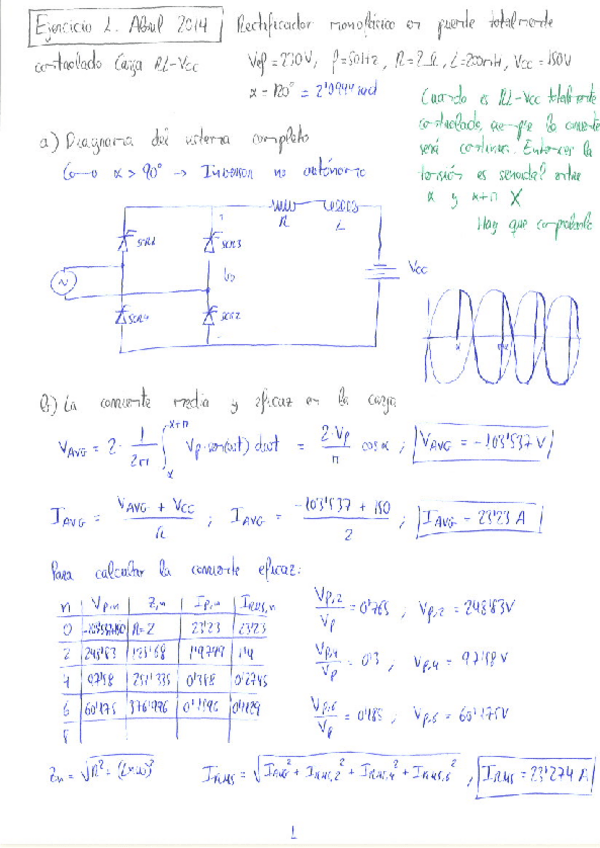 Ejercicio 1. Abril 2014
Rectificador monofásico en puente totalmente
controlado Carga RL-Vcc
Vef = 230V, f = 50Hz, R = 2Ω, L = 200mH, Vcc = 150V
α = 120° = 2'0944 rad
Cuando es RL-Vcc totalmente
controlado, siempre la corriente
será continua. Entonces la
tensión es senoidal entre
α y α+π X
Hay que comprobarlo
a) Diagrama del sistema completo
Como α > 90° → Inversor no autónomo
R L
SCR1 SCR3
Vcc
SCR4 SCR2
b) La corriente media y eficaz en la carga
VAVG = 2 · 1/2π ∫ α α+π Vp·sen(ωt) dωt = 2·Vp/π cos α ; VAVG = -103'537 V
IAVG = VAVG + Vcc / R ; IAVG = -103'537 + 150 / 2 ; IAVG = 23'23 A
Para calcular la corriente eficaz:
n Vp,n Zn Ip,n IRMS,n
0 R=2 23'23 23'23
2 248'83 1'4
4 97'58 0'2745
6 60'175
8
Vp,2/Vp = 0'765 ; Vp,2 = 248'83V
Vp,4/Vp = 0'3 ; Vp,4 = 97'58 V
Vp,6/Vp = 0'185 ; Vp,6 = 60'175V
Zn = √R² + (Lnω)²
IRMS = √IAVG² + IRMS,2² + IRMS,4² + IRMS,6² , IRMS = 23'274 A
1